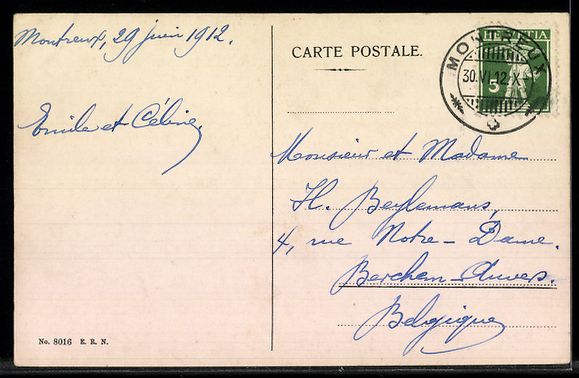 Montreux, 29 juin 1912.
Emile et Céline
CARTE POSTALE.
HELVETIA
5
MONTREUX
30.VI.12.X
Monsieur et Madame
H. Beylemans,
4, rue Notre-Dame.
Berchem-Anvers.
Belgique
No. 8016 E. R. N.